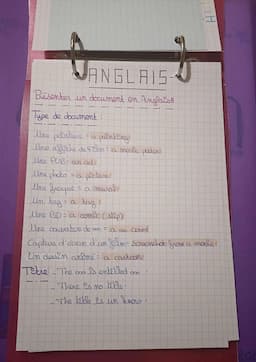 ANGLAIS
Présenter un document en Anglais
Type de document
Une peinture : a painting
Une affiche de film : a movie poster
Une PUB : an ad
Une photo : a picture
Une fresque : a mural
Un tag : a tag
Une BD : a comic (strip)
Une couverture de
Capture d'écran d'un film : screenshot from a movie
Un dessin animé : a cartoon
Titre - The is entitled
- There is no title
- The title is un